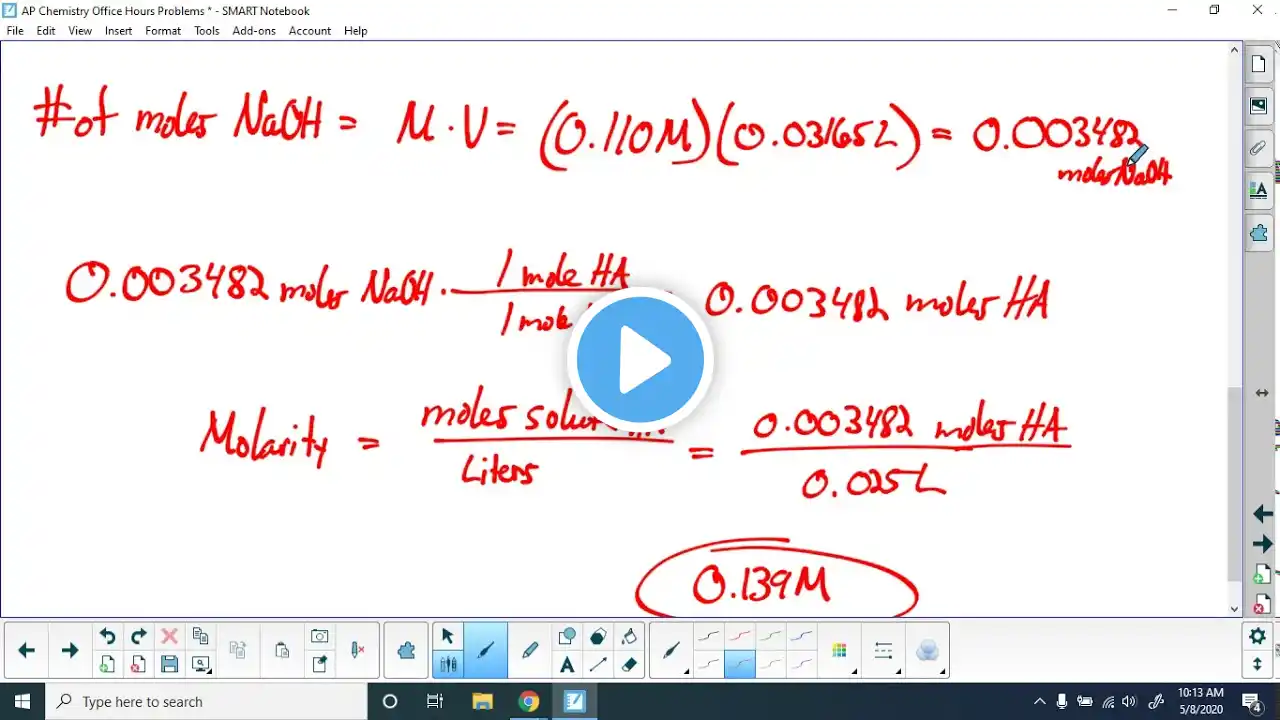 AP Chemistry Office Hours Problems * - SMART Notebook
File Edit View Insert Format Tools Add-ons Account Help
# of moles NaOH = M · V = (0.110M)(0.03165L) = 0.003482
moles NaOH
0.003482 moles NaOH · 1 mole HA
1 mole
0.003482 moles HA
Molarity = moles
Liters
= 0.003482 moles HA
0.025L
0.139M
Type here to search
10:13 AM
5/8/2020
4